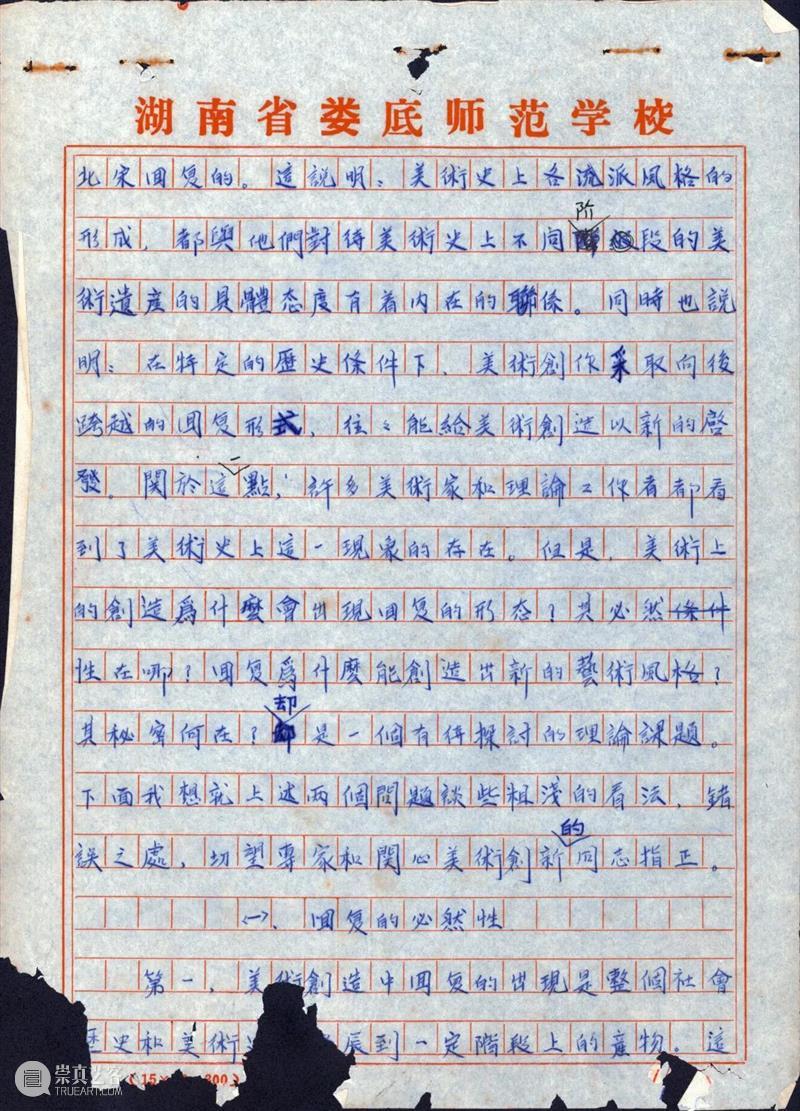 湖南省娄底师范学校
北宋回复的。這說明：美術史上各流派風格的
形成，都與他們對待美術史上不同阶段的美
術遺産的具體态度有着内在的聯係。同時也說
明：在特定的歷史條件下，美術創作采取向後
跨越的回复形式，往々能給美術創造以新的啓
發。関於這一點，許多美術家和理論工作者都看
到了美術史上這一現象的存在。但是，美術上
的創造爲什麼會出現回复的形态？其必然條件
性在哪？回复爲什麼能創造出新的藝術風格？
其秘密何在？却是一個有待探討的理論課題。
下面我想就上述两個問題談些粗淺的看法，錯
誤之處，切望專家和関心美術創新的同志指正。
㈠、回复的必然性
第一，美術創造中回复的出現是整個社會
歷史和美術史 展到一定階段上的産物。這
(15× 300)
崇真艺客
TRUEART.COM